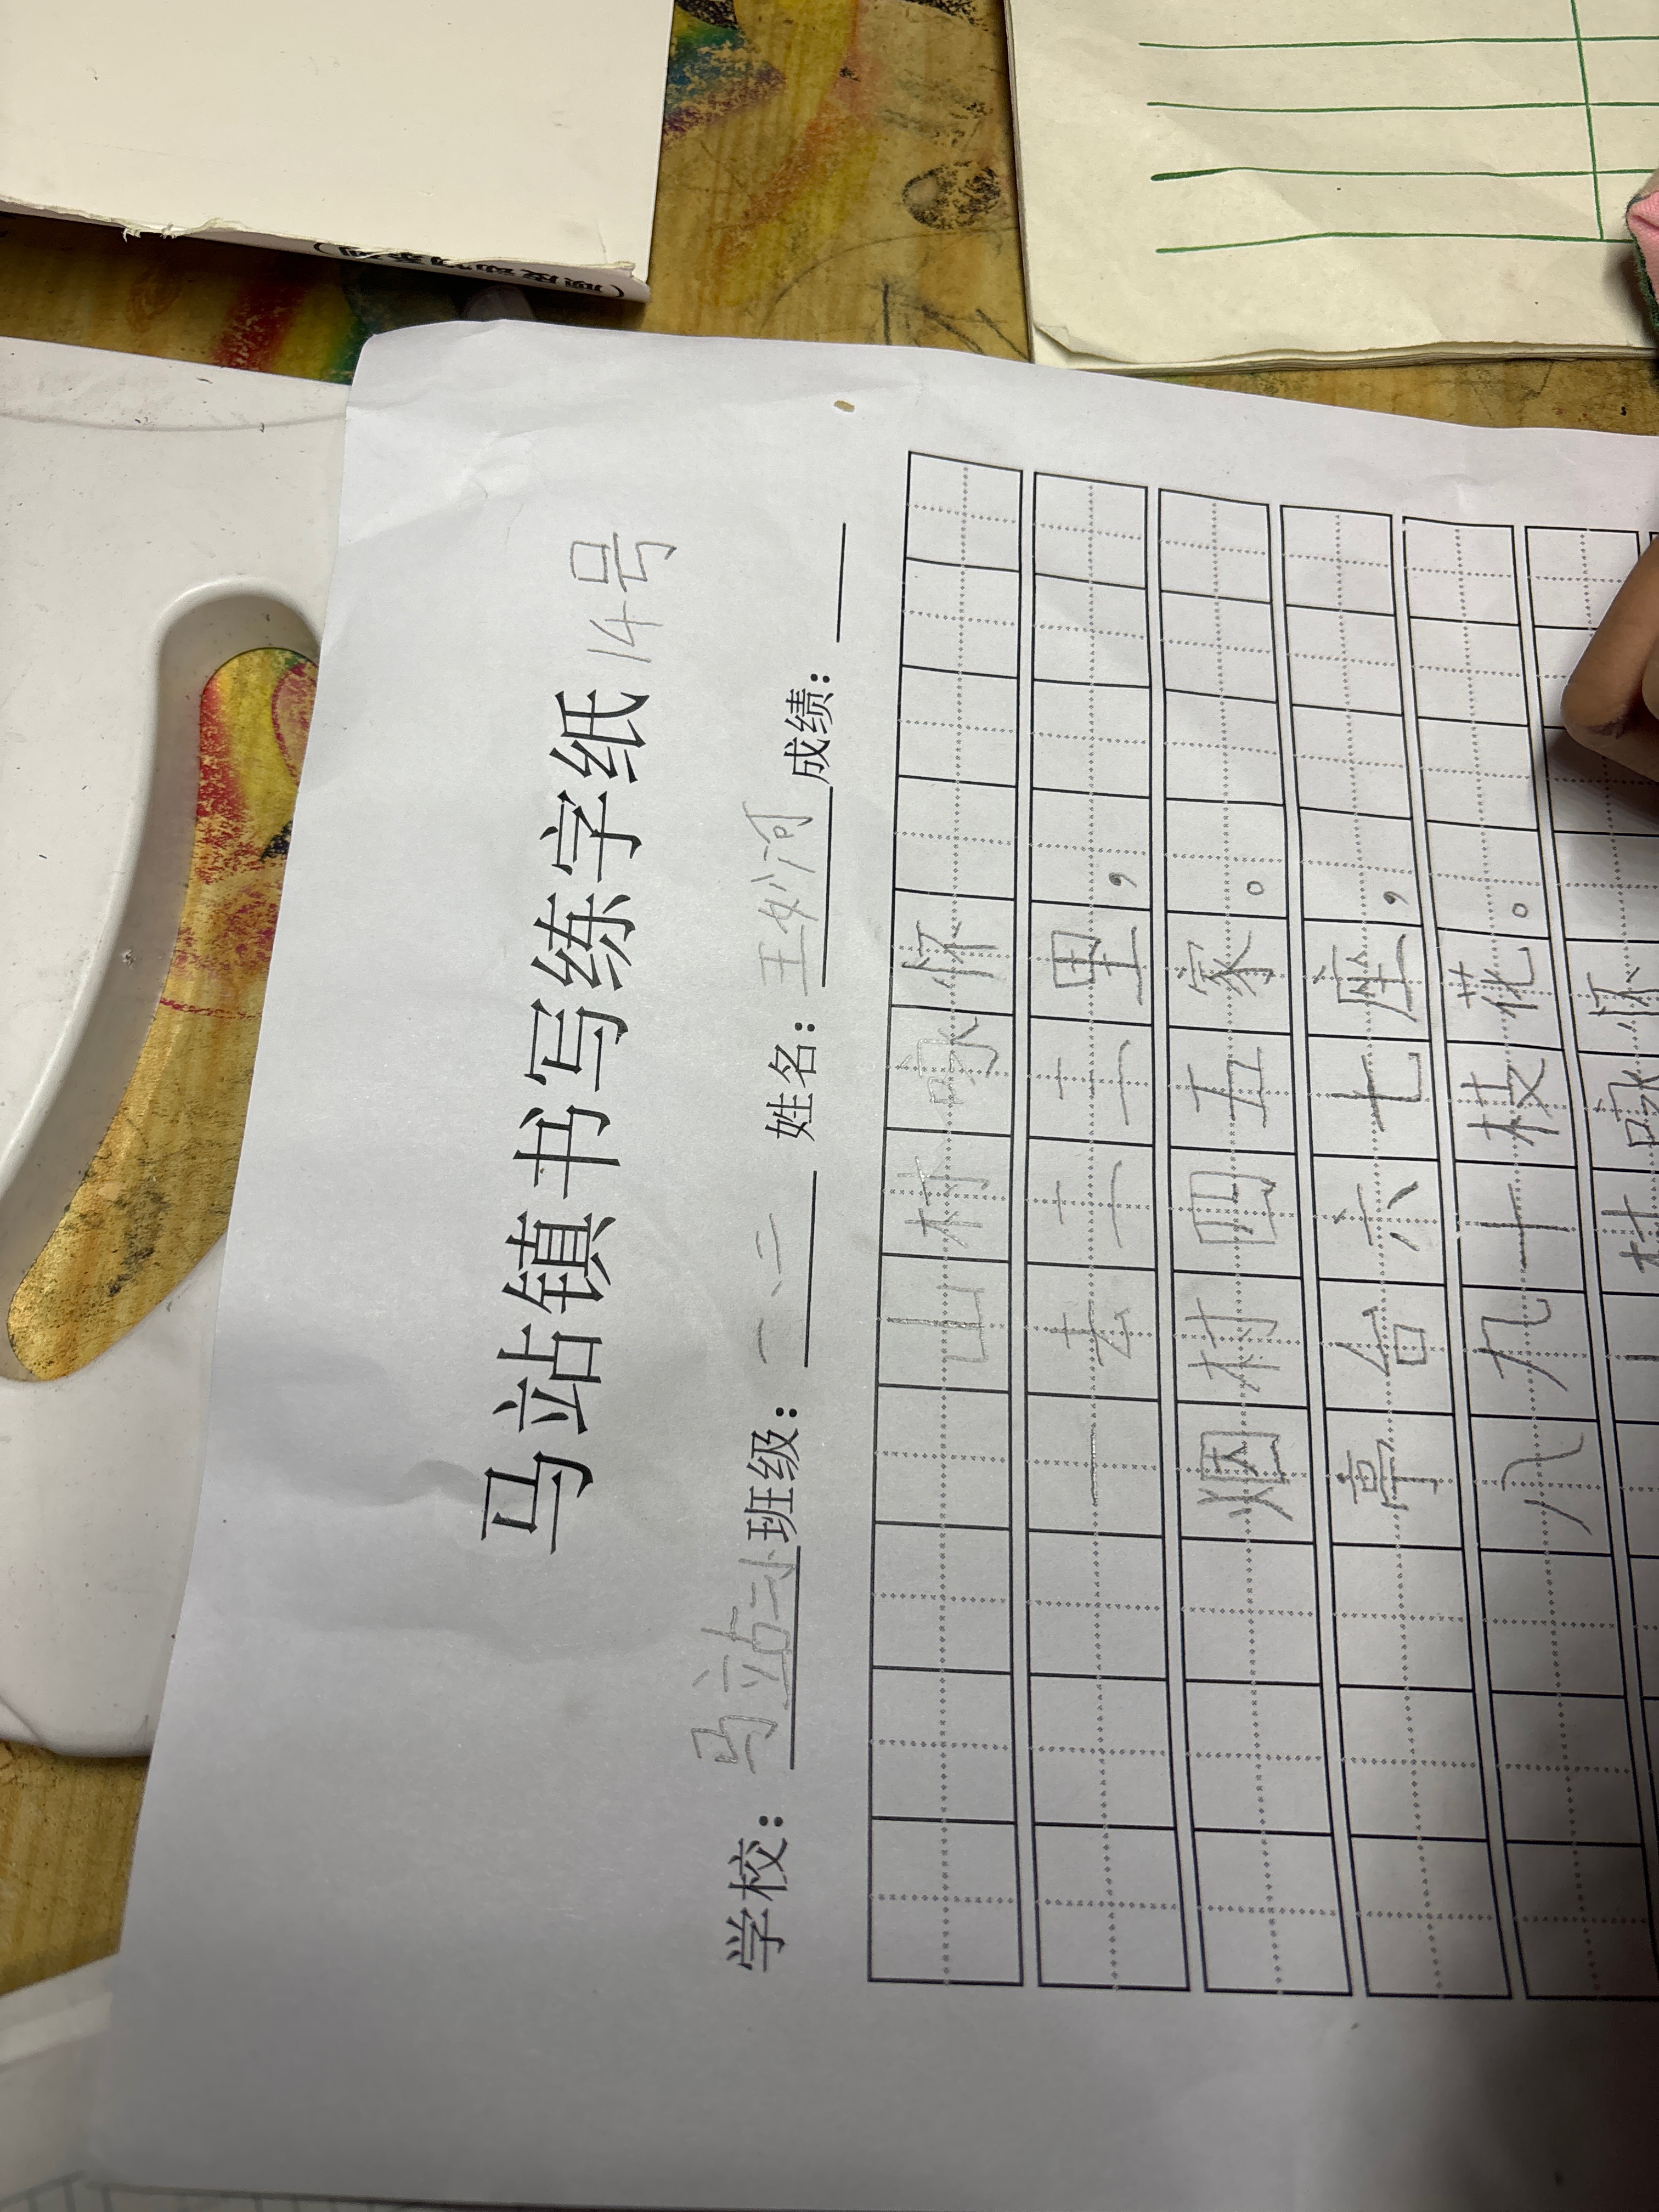 马站镇书写练字纸 14号
学校：马站小 班级：一、二 姓名：王妙河 成绩：
山村咏怀
一去二三里，
烟村四五家。
亭台六七座，
八九十枝花。
村咏怀